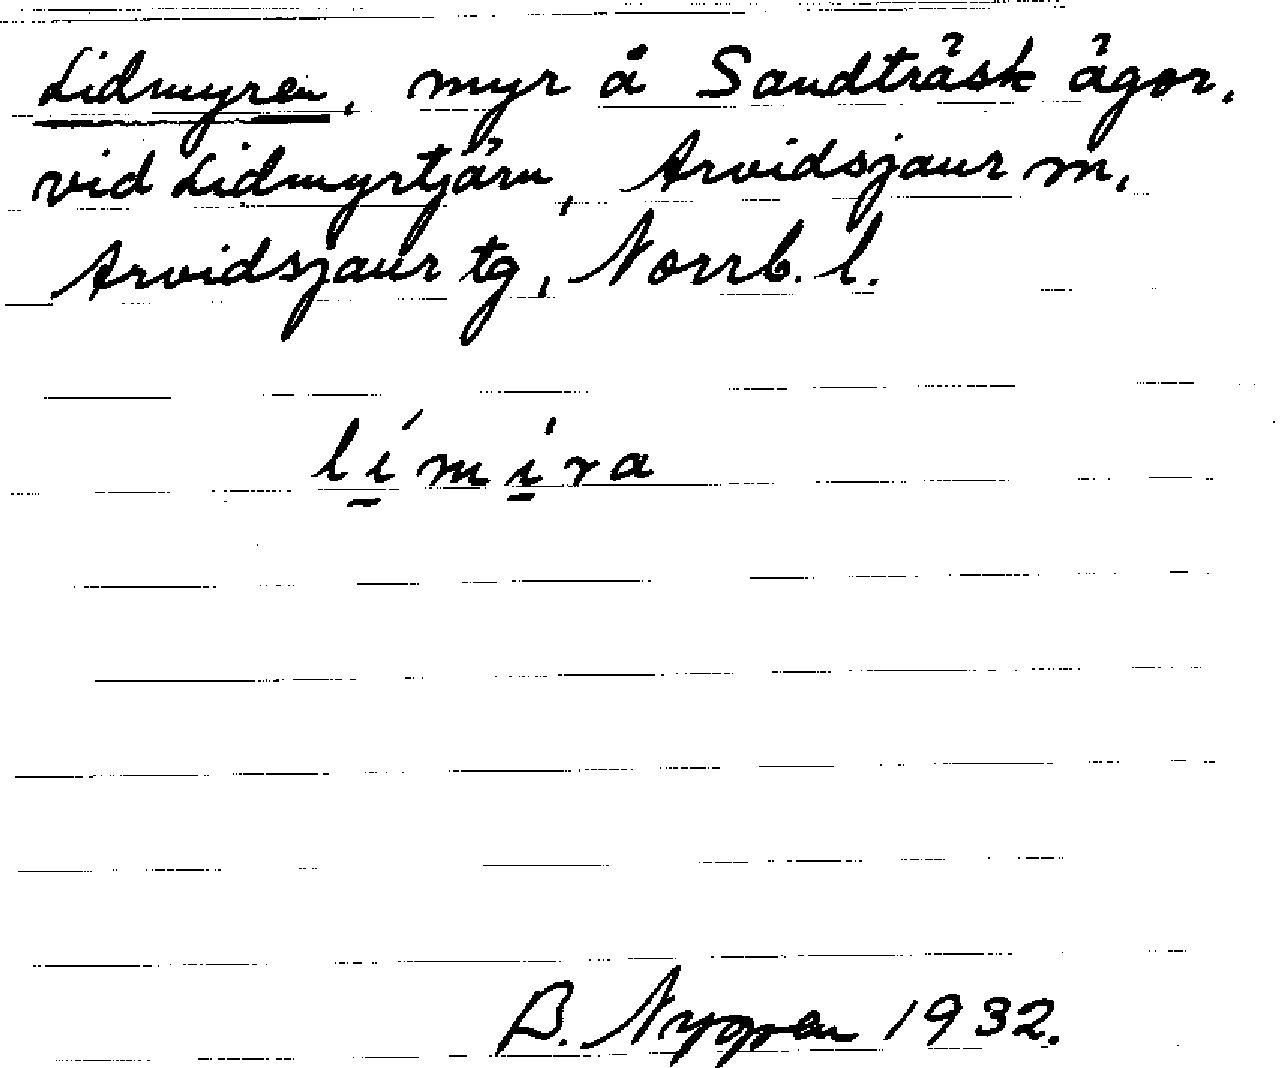 Lidmyren, myr å Sandträsk ägor,
vid Lidmyrtjärn, Arvidsjaur m,
Arvidsjaur tg, Norrb. l.
lí̱mi̱ra
B. Nygren 1932.